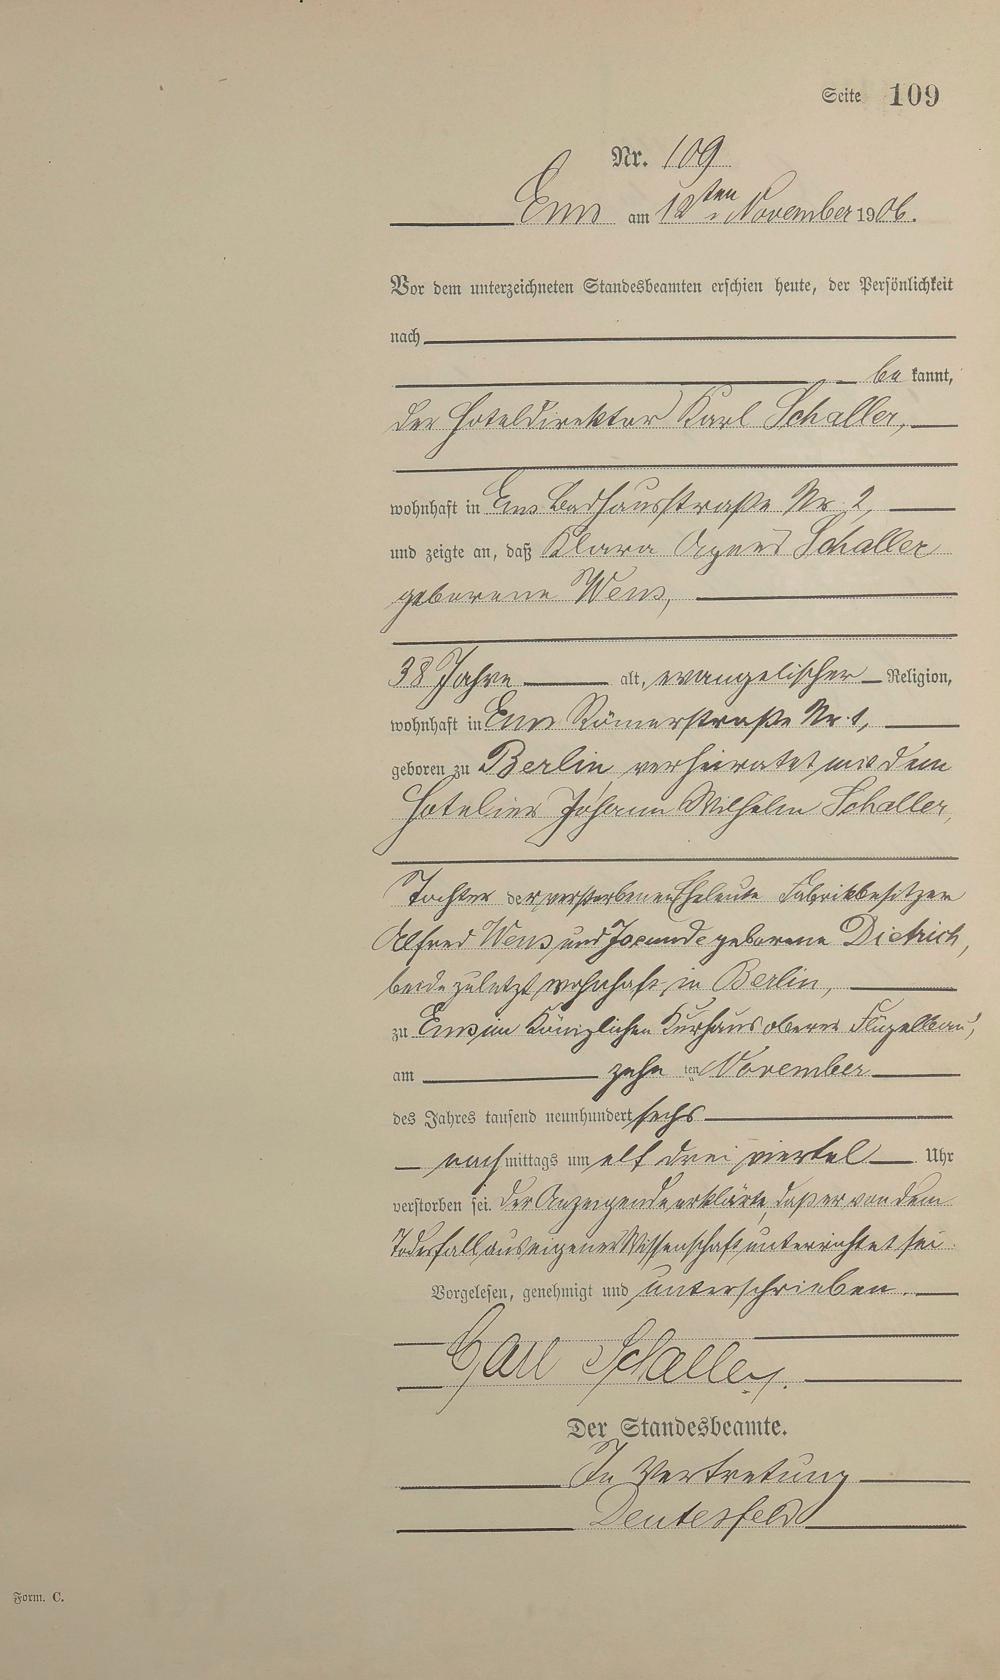 Seite 109
Nr. 109
Ems am 12ten November 1906.
Vor dem unterzeichneten Standesbeamten erschien heute, der Persönlichkeit
nach
be kannt,
der Hoteldirektor Karl Schaller,
wohnhaft in Ems Badhausstraße Nr 2,
und zeigte an, daß Klara Agnes Schaller
geborene Wens,
38 Jahre alt, evangelischer Religion,
wohnhaft in Ems Römerstraße Nr. 1,
geboren zu Berlin verheiratet mit dem
Hotelier Johann Wilhelm Schaller,
Tochter der verstorbenen Eheleute Fabrikbesitzer
Alfred Wens und geborene Dietrich,
beide zuletzt wohnhaft in Berlin,
zu Ems im Königlichen Kurhaus oberer Flügelbau,
am zehn ten November
des Jahres tausend neunhundert sechs
nach mittags um elf drei viertel Uhr
verstorben sei. Der Anzeigende erklärte, daß er von dem
Todesfall aus eigener Wissenschaft unterrichtet sei.
Vorgelesen, genehmigt und unterschrieben.
Carl Schaller.
Der Standesbeamte.
In Vertretung
Deutesfeld
Form. C.